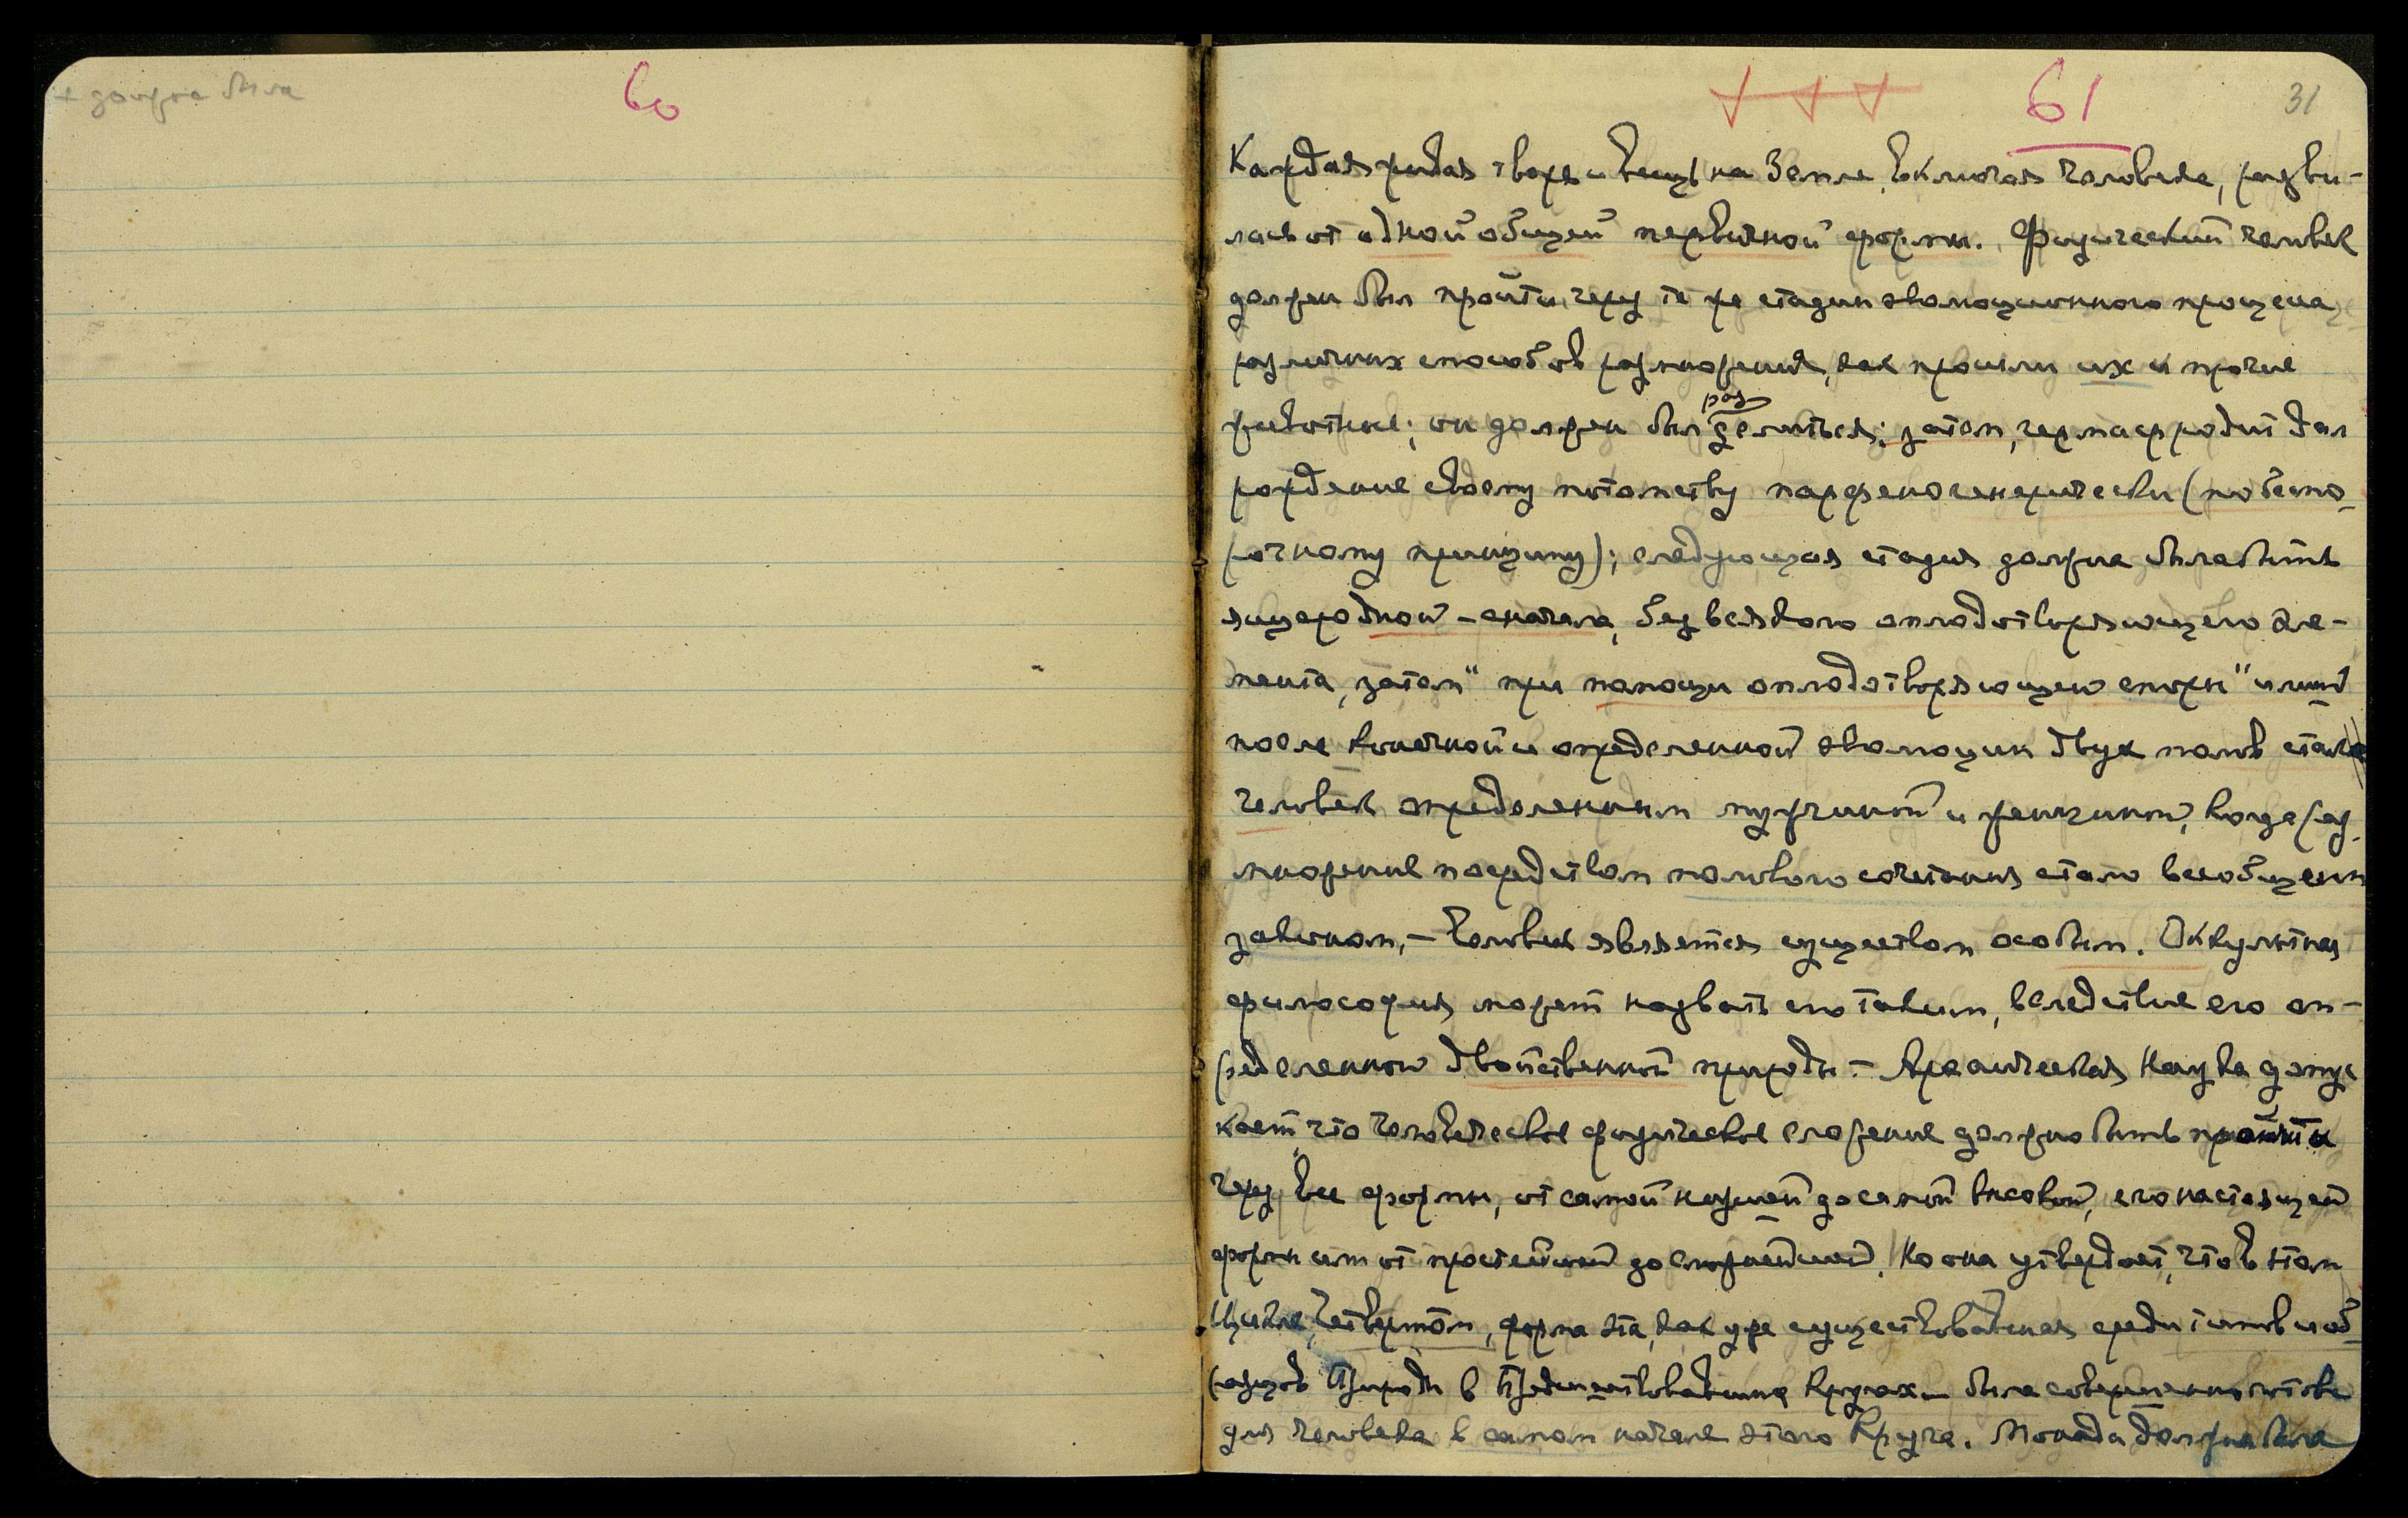 + должна была
60
61
31
Каждая живая тварь и вещь на Земле, включая человека, разви-
лась от одной общей первичной формы. Физический человек
должен был пройти через те же стадии эволюционного процесса
различных способов размножения, как прошли их и прочие
животные; он должен был
раз
делиться; затем, гермафродит дал
рождение своему потомству парфеногенерически (по беспо-
рочному принципу); следующая стадия должна была быть
яйцеродной – сначала, без всякого оплодотворяющего эле-
мента, затем "при помощи оплодотворяющей споры" и лишь
после конечной и определенной эволюции двух полов стал
человек определенным мужчиной и женщиной, когда раз-
множение посредством полового сочетания стало всеобщим
законом, – Человек является существом особым. Оккультная
философия может назвать его таким, вследствие его оп-
ределенной двойственной природы. – Архаическая Наука допус
кает, что человеческое физическое сложение должно быть пройти
через все формы, от самой низшей до самой высокой, его настоящей
формы или от простейшей до сложнейшей. Но она утверждает, что в этом
Цикле, Четвертом, форма эта, как уже существовавшая среди типов и об-
разцов Природы в Предшествовавших Кругах – была совершенно готова
для человека в самом начале этого Круга. Монада должна была